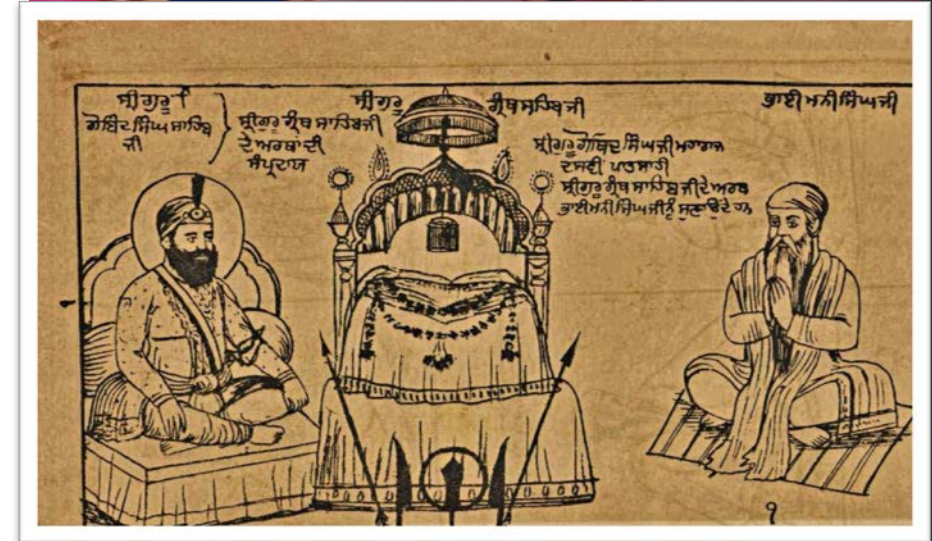 ਸ੍ਰੀ ਗੁਰੂ
ਗੋਬਿੰਦ ਸਿੰਘ ਸਾਹਿਬ
ਜੀ
ਸ੍ਰੀ ਗੁਰੂ ਗ੍ਰੰਥ ਸਾਹਿਬ ਜੀ
ਦੇ ਅਰਥਾਂ ਦੀ
ਸੰਪ੍ਰਦਾਯ
ਸ੍ਰੀ ਗੁਰੂ ਗ੍ਰੰਥ ਸਾਹਿਬ ਜੀ
ਭਾਈ ਮਨੀ ਸਿੰਘ ਜੀ
ਸ੍ਰੀ ਗੁਰੂ ਗੋਬਿੰਦ ਸਿੰਘ ਜੀ ਮਹਾਰਾਜ
ਦਸਵੀਂ ਪਾਤਸਾਹੀ
ਸ੍ਰੀ ਗੁਰੂ ਗ੍ਰੰਥ ਸਾਹਿਬ ਜੀ ਦੇ ਅਰਥ
ਭਾਈ ਮਨੀ ਸਿੰਘ ਜੀ ਨੂੰ ਸੁਣਾਉਂਦੇ ਹਨ
੧